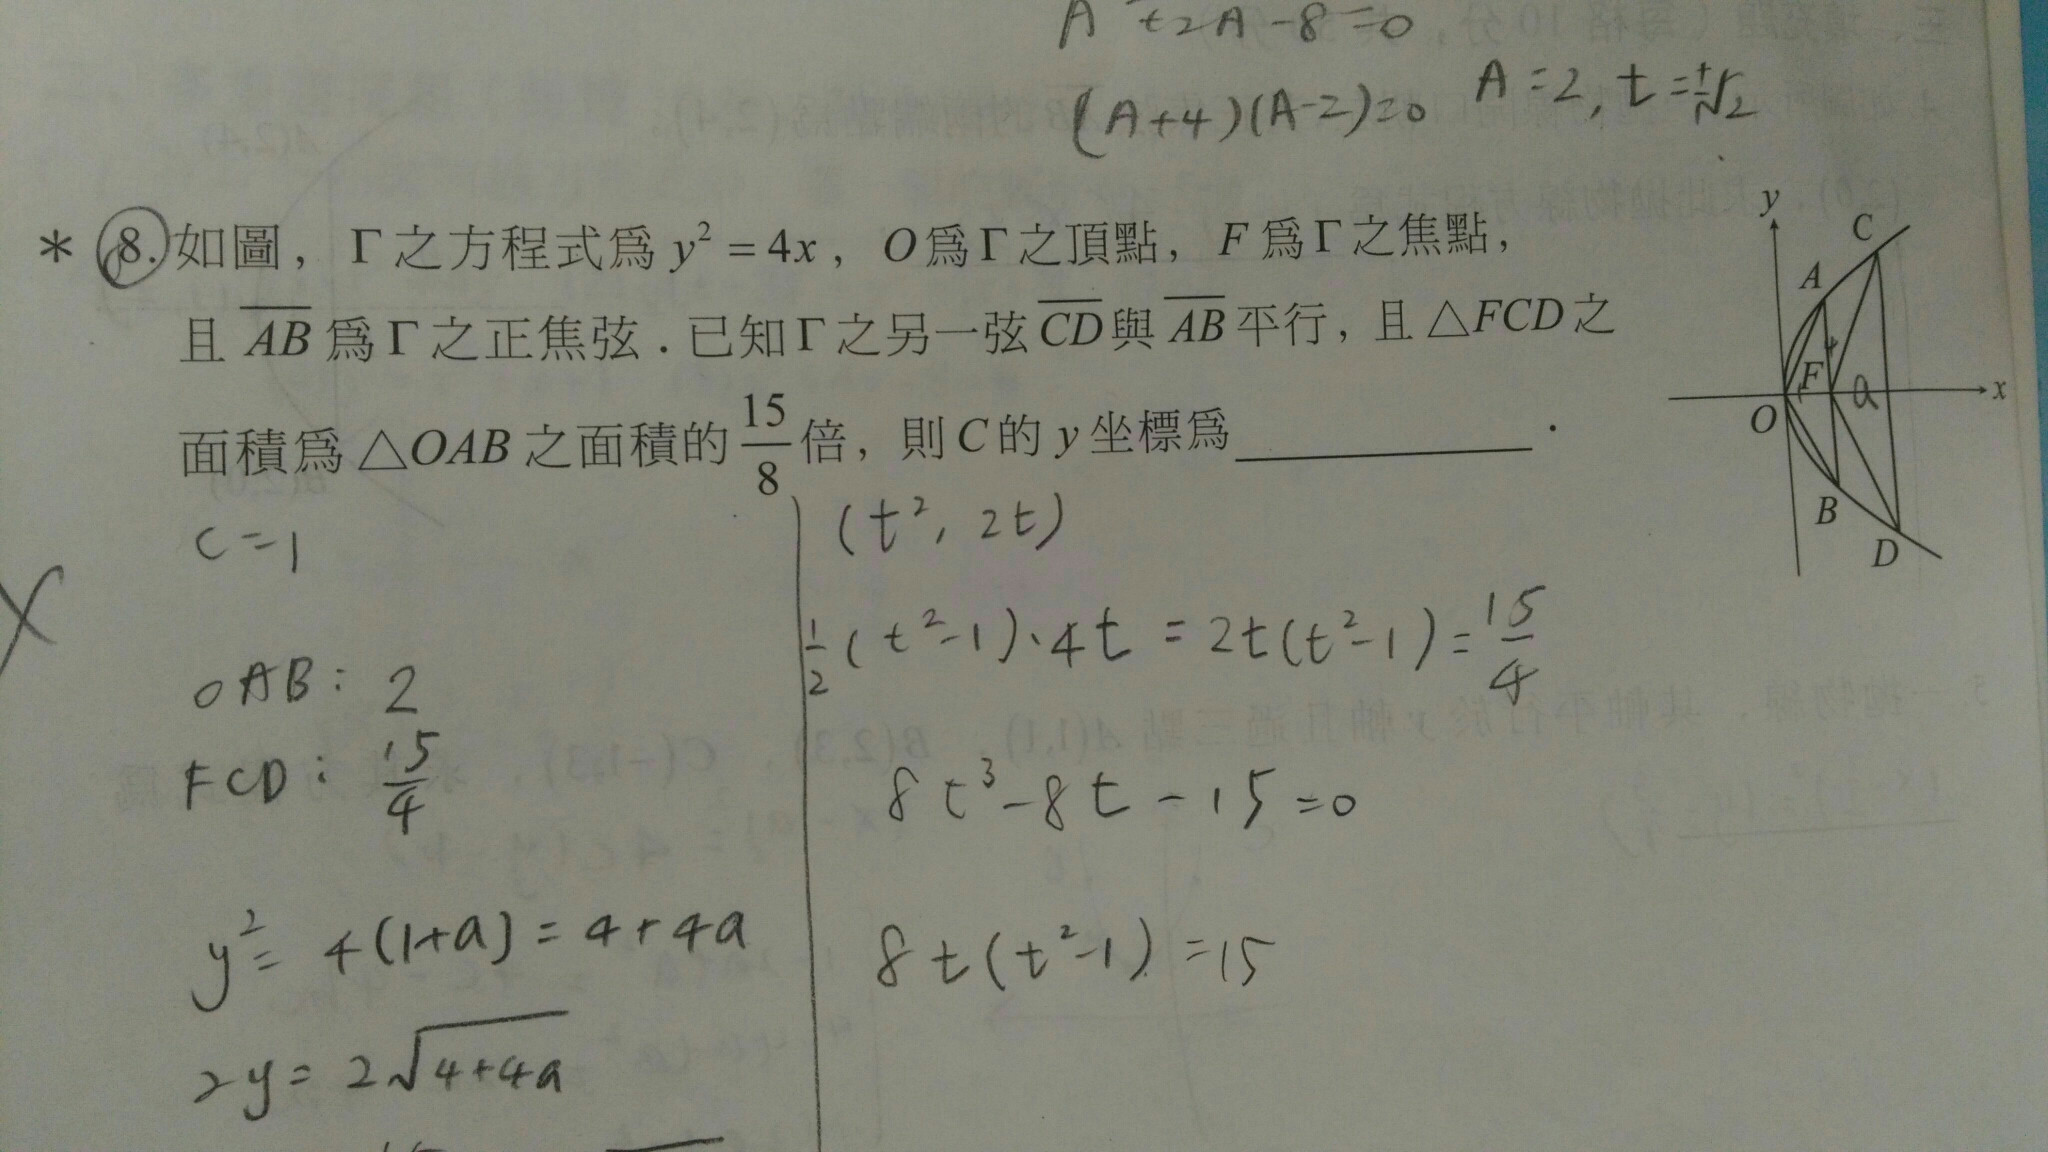 A +2A-8=0
(A+4)(A-2)=0 A=2, t=±√2
* 8. 如圖，Γ之方程式為 y² = 4x，O為Γ之頂點，F為Γ之焦點，
且 AB 為Γ之正焦弦．已知Γ之另一弦CD與AB平行，且△FCD之
面積為△OAB之面積的 15/8 倍，則C的y坐標為________．
y
C
A
F a
x
O
B
D
X
C=1
OAB: 2
FCD: 15/4
y² = 4(1+a) = 4+4a
2y = 2√4+4a
(t², 2t)
1/2 (t²-1)·4t = 2t(t²-1) = 15/4
8t³-8t-15=0
8t(t²-1)=15